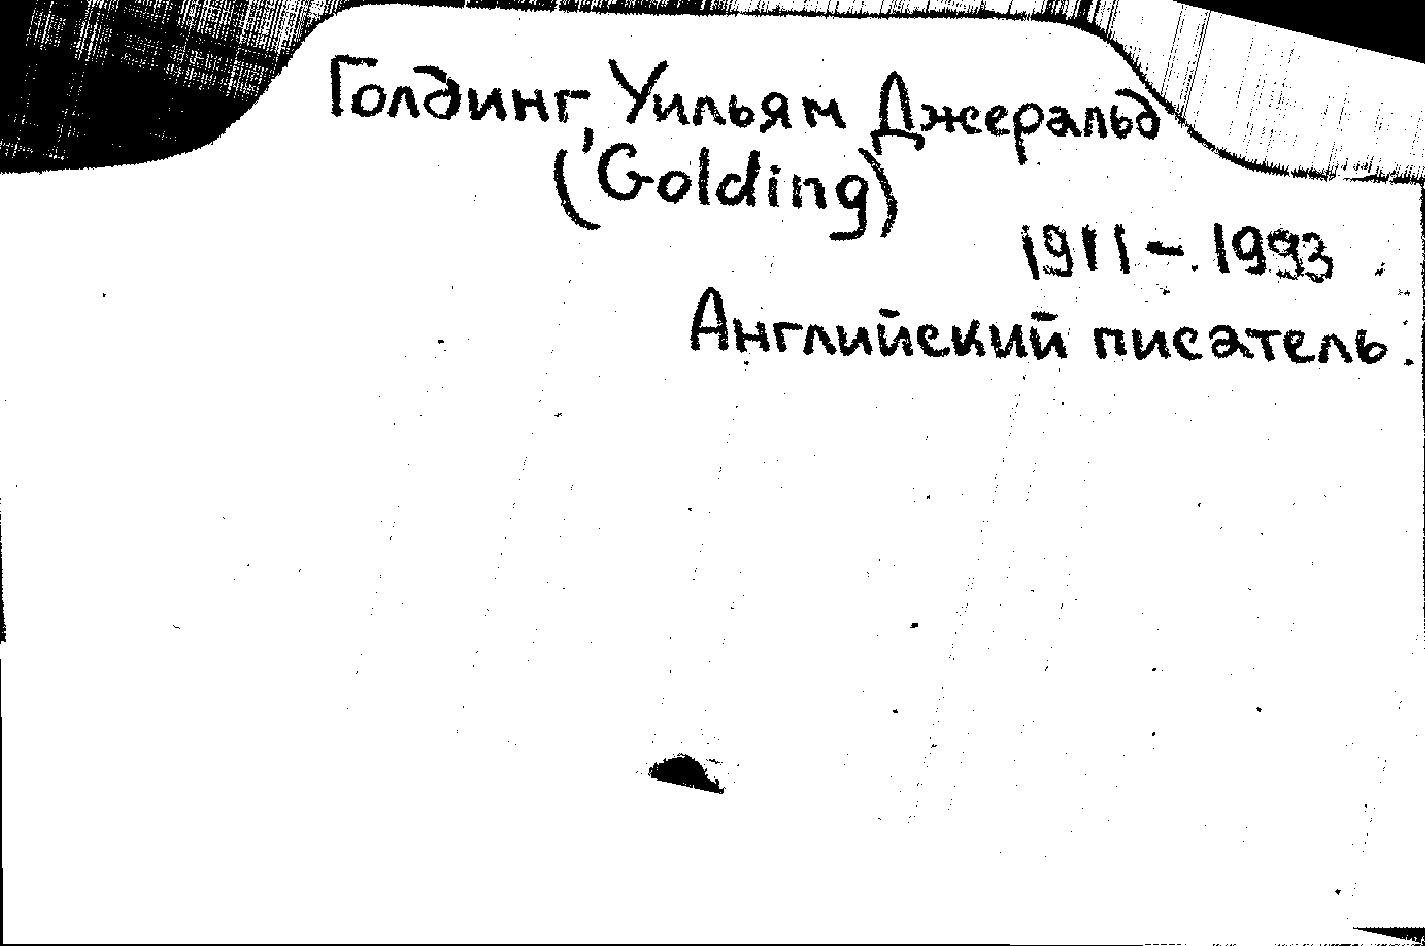 Голдинг, Уильям Джеральд
(Golding)
1911 - 1993
Английский писатель.